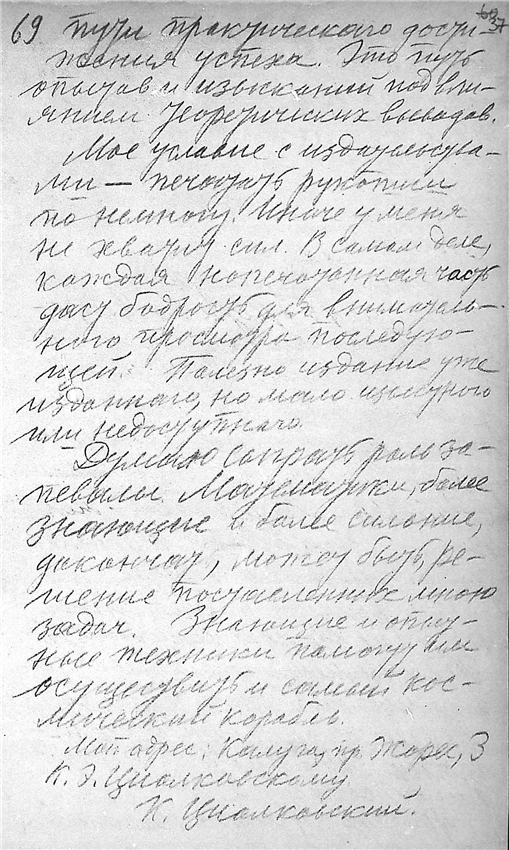 69 пути практического дости-
жения успеха. Это путь
опытов и изысканий под вли-
янием теоретических выводов.
Мое условие с издательства-
ми — печатать рукописи
по немногу. Иначе у меня
не хватит сил. В самом деле,
каждая напечатанная часть
даст бодрость для вниматель-
ного просмотра последую-
щей. Полезно издание уже
изданного, но мало известного
или недоступного.
Думаю сыграть роль за-
певалы. Математики, более
знающие и более сильные,
докончат, может быть, ре-
шение поставленных мною
задач. Знающие и опыт-
ные техники помогут им
осуществить и самый кос-
мический корабль.
Мой адрес: Калуга, пр. Жорес, 3
К. Э. Циолковскому
К. Циолковский.